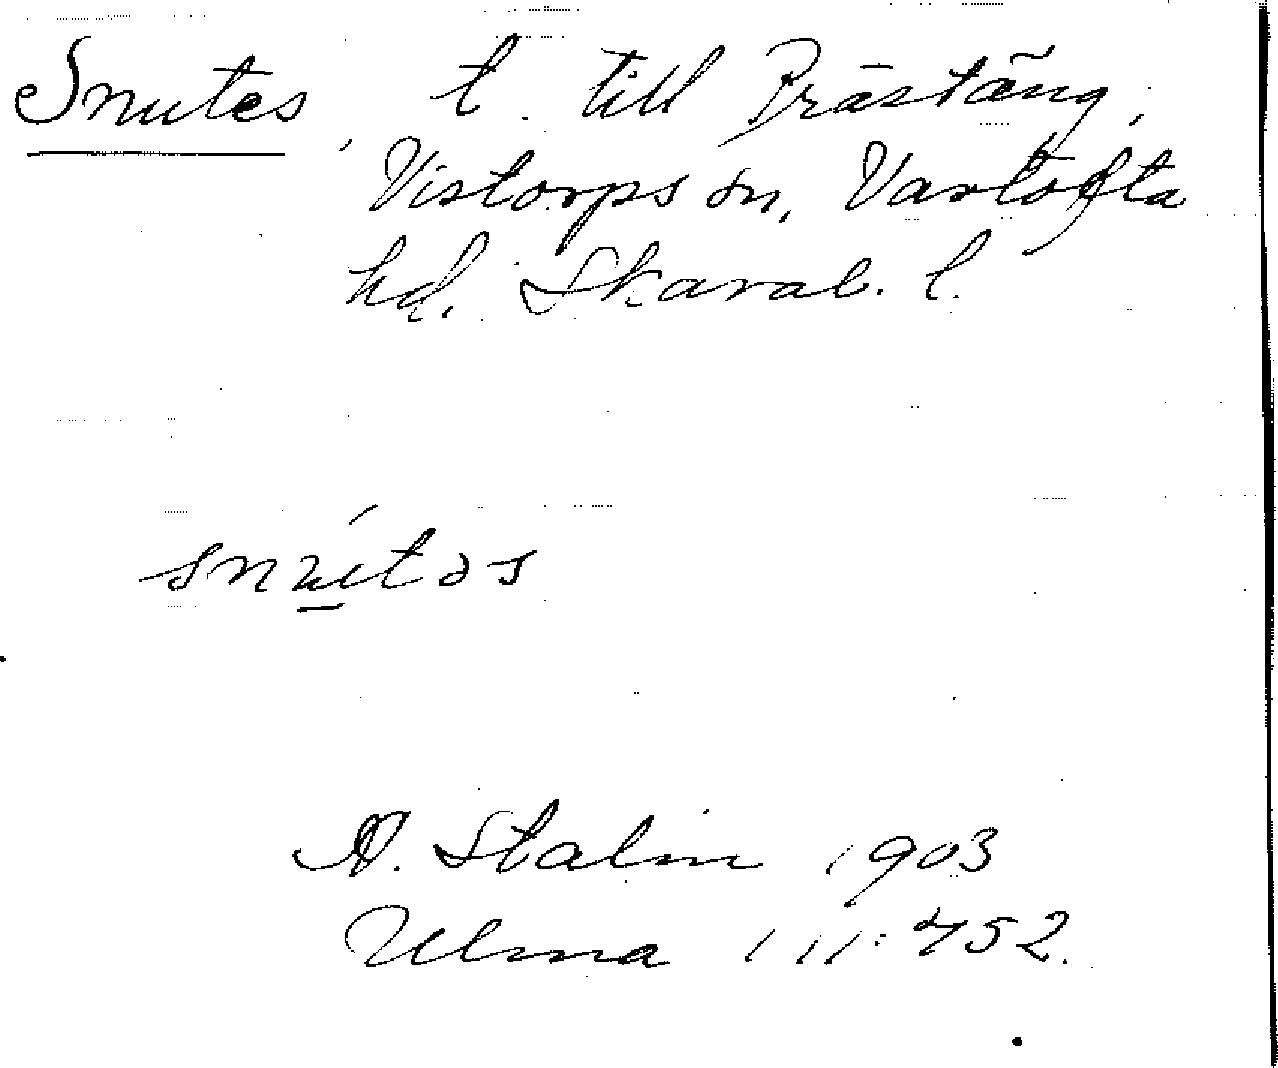 Snutes, t. till Prästäng,
Vistorps sn, Vartofta
hd. Skarab. l.
snú̲təs
A. Stalin 1903
Ulma 111:452.